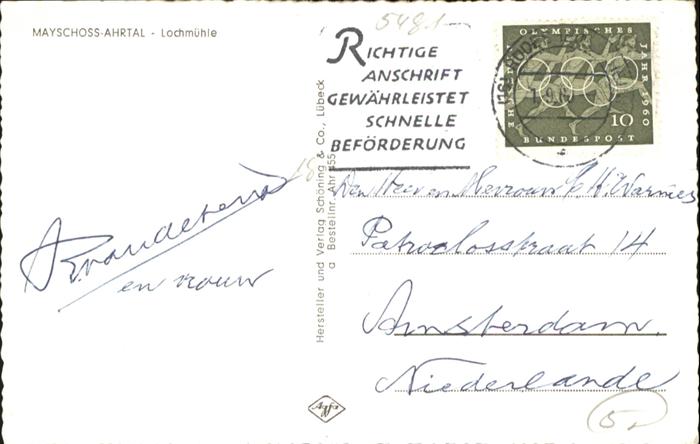 MAYSCHOSS-AHRTAL - Lochmühle
5481
RICHTIGE
ANSCHRIFT
GEWÄHRLEISTET
SCHNELLE
BEFÖRDERUNG
OLYMPISCHES
JAHR 1960
10
BUNDESPOST
Hersteller und Verlag Schöning & Co., Lübeck
a Bestellnr. Ahr 55
en vrouw
Den Heer en Mevrouw
Patroclosstraat 14
Amsterdam,
Niederlande
Agfa